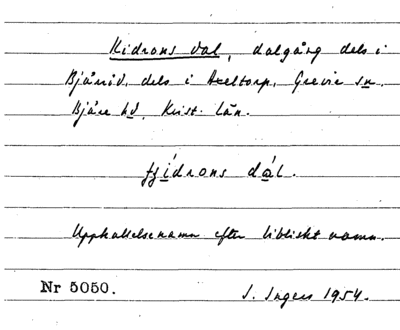 Kidrons dal, dalgång dels i
Bjäröd, dels i Axeltorp, Grevie sn.
Bjäre hd, Krist. län.
kjídrons dál.
Uppkallelsenamn efter bibliskt namn.
Nr 5050.
I. Ingers 1954.